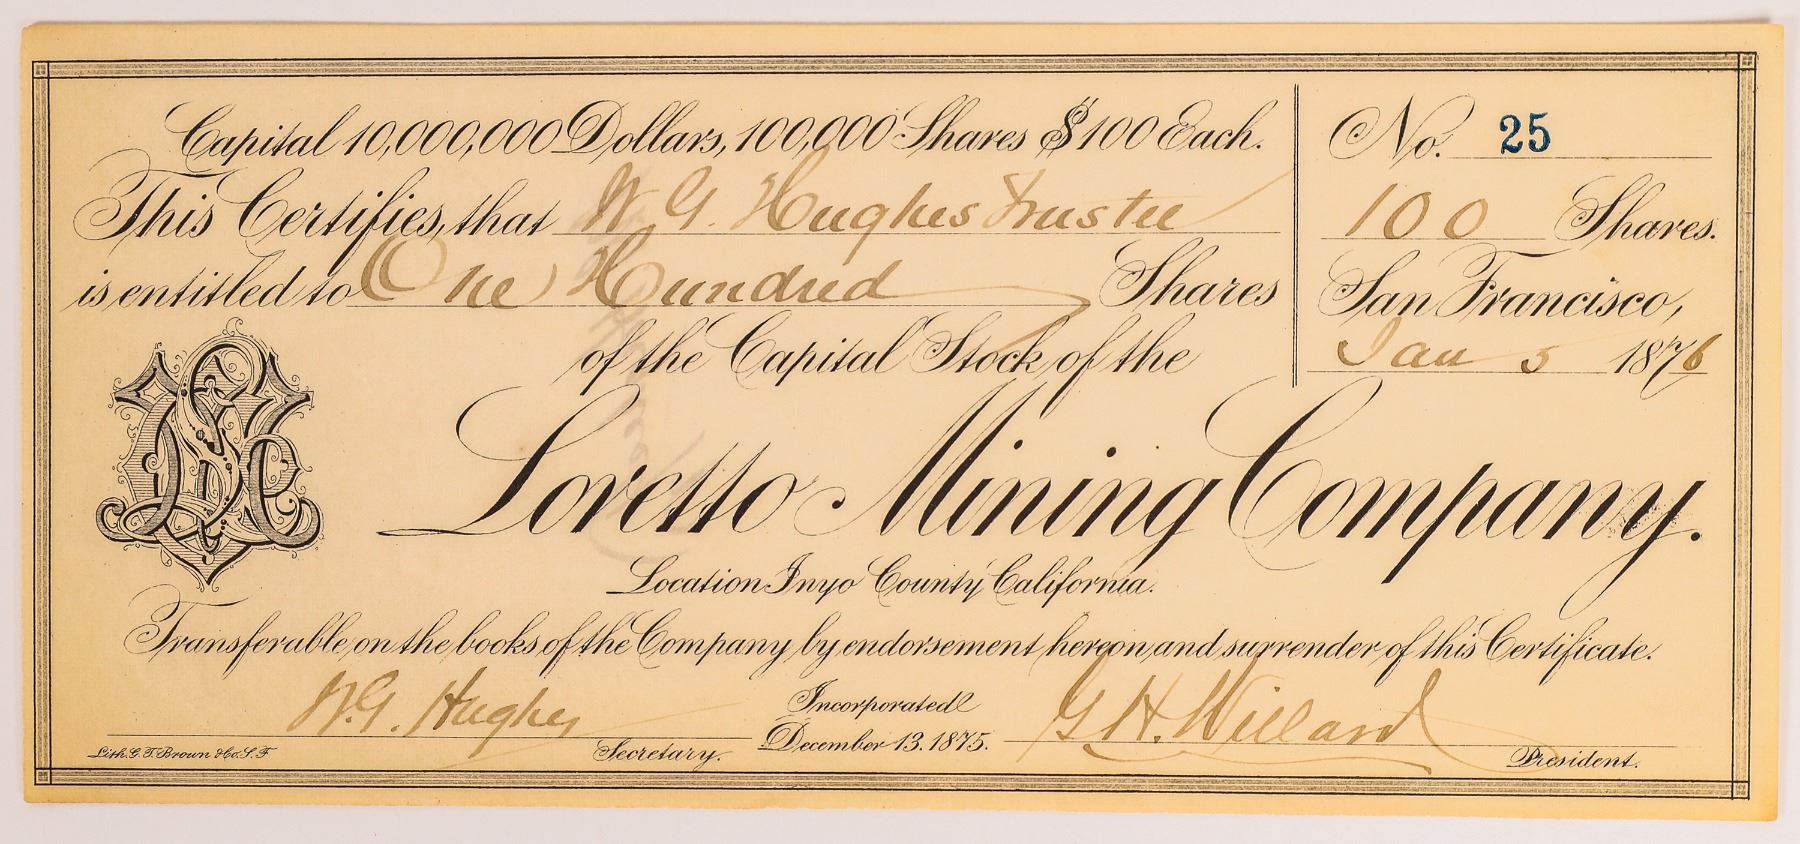 Capital 10,000,000 Dollars, 100,000 Shares $100 Each.
This Certifies, that W. G. Hughes Trustee
is entitled to One Hundred Shares
of the Capital Stock of the
No. 25
100 Shares.
San Francisco,
Jan 5 1876
Loretto Mining Company.
Location Inyo County California.
Transferable on the books of the Company by endorsement hereon and surrender of this Certificate.
W. G. Hughes Secretary.
Incorporated
December 13. 1875.
G. H. Willard President.
Lith. G. T. Brown & Co. S. F.